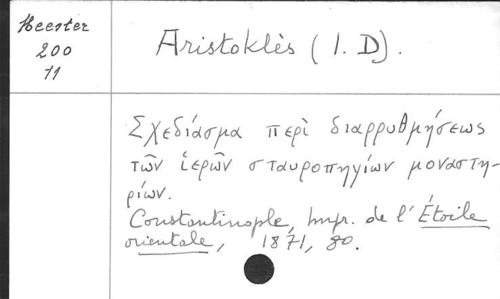 Heester
200
11
Aristoklès (I. D).
Σχεδίασμα περὶ διαρρυθμήσεως
τῶν ἱερῶν σταυροπηγίων μοναστη-
ρίων.
Constantinople, Impr. de l'Étoile
orientale, 1871, 80.